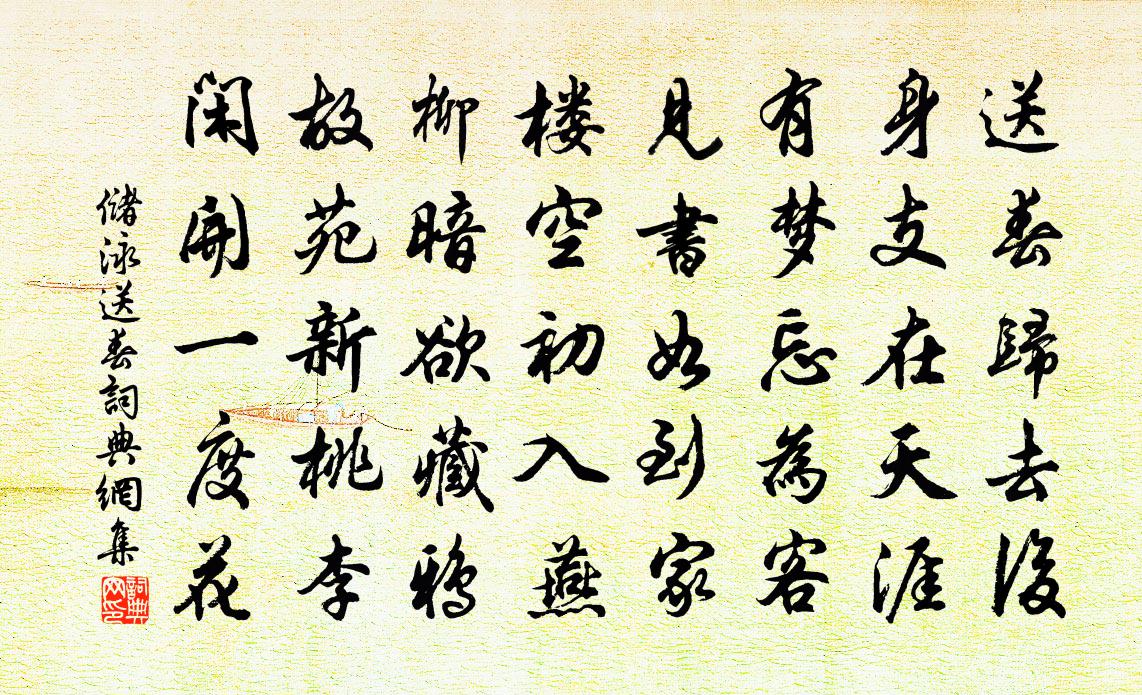 送春歸去後
身支在天涯
有梦忘為客
見書如到家
楼空初入燕
柳暗欲藏鴉
故苑新桃李
閑開一度花
儲泳送春詞典網集
詞典网印